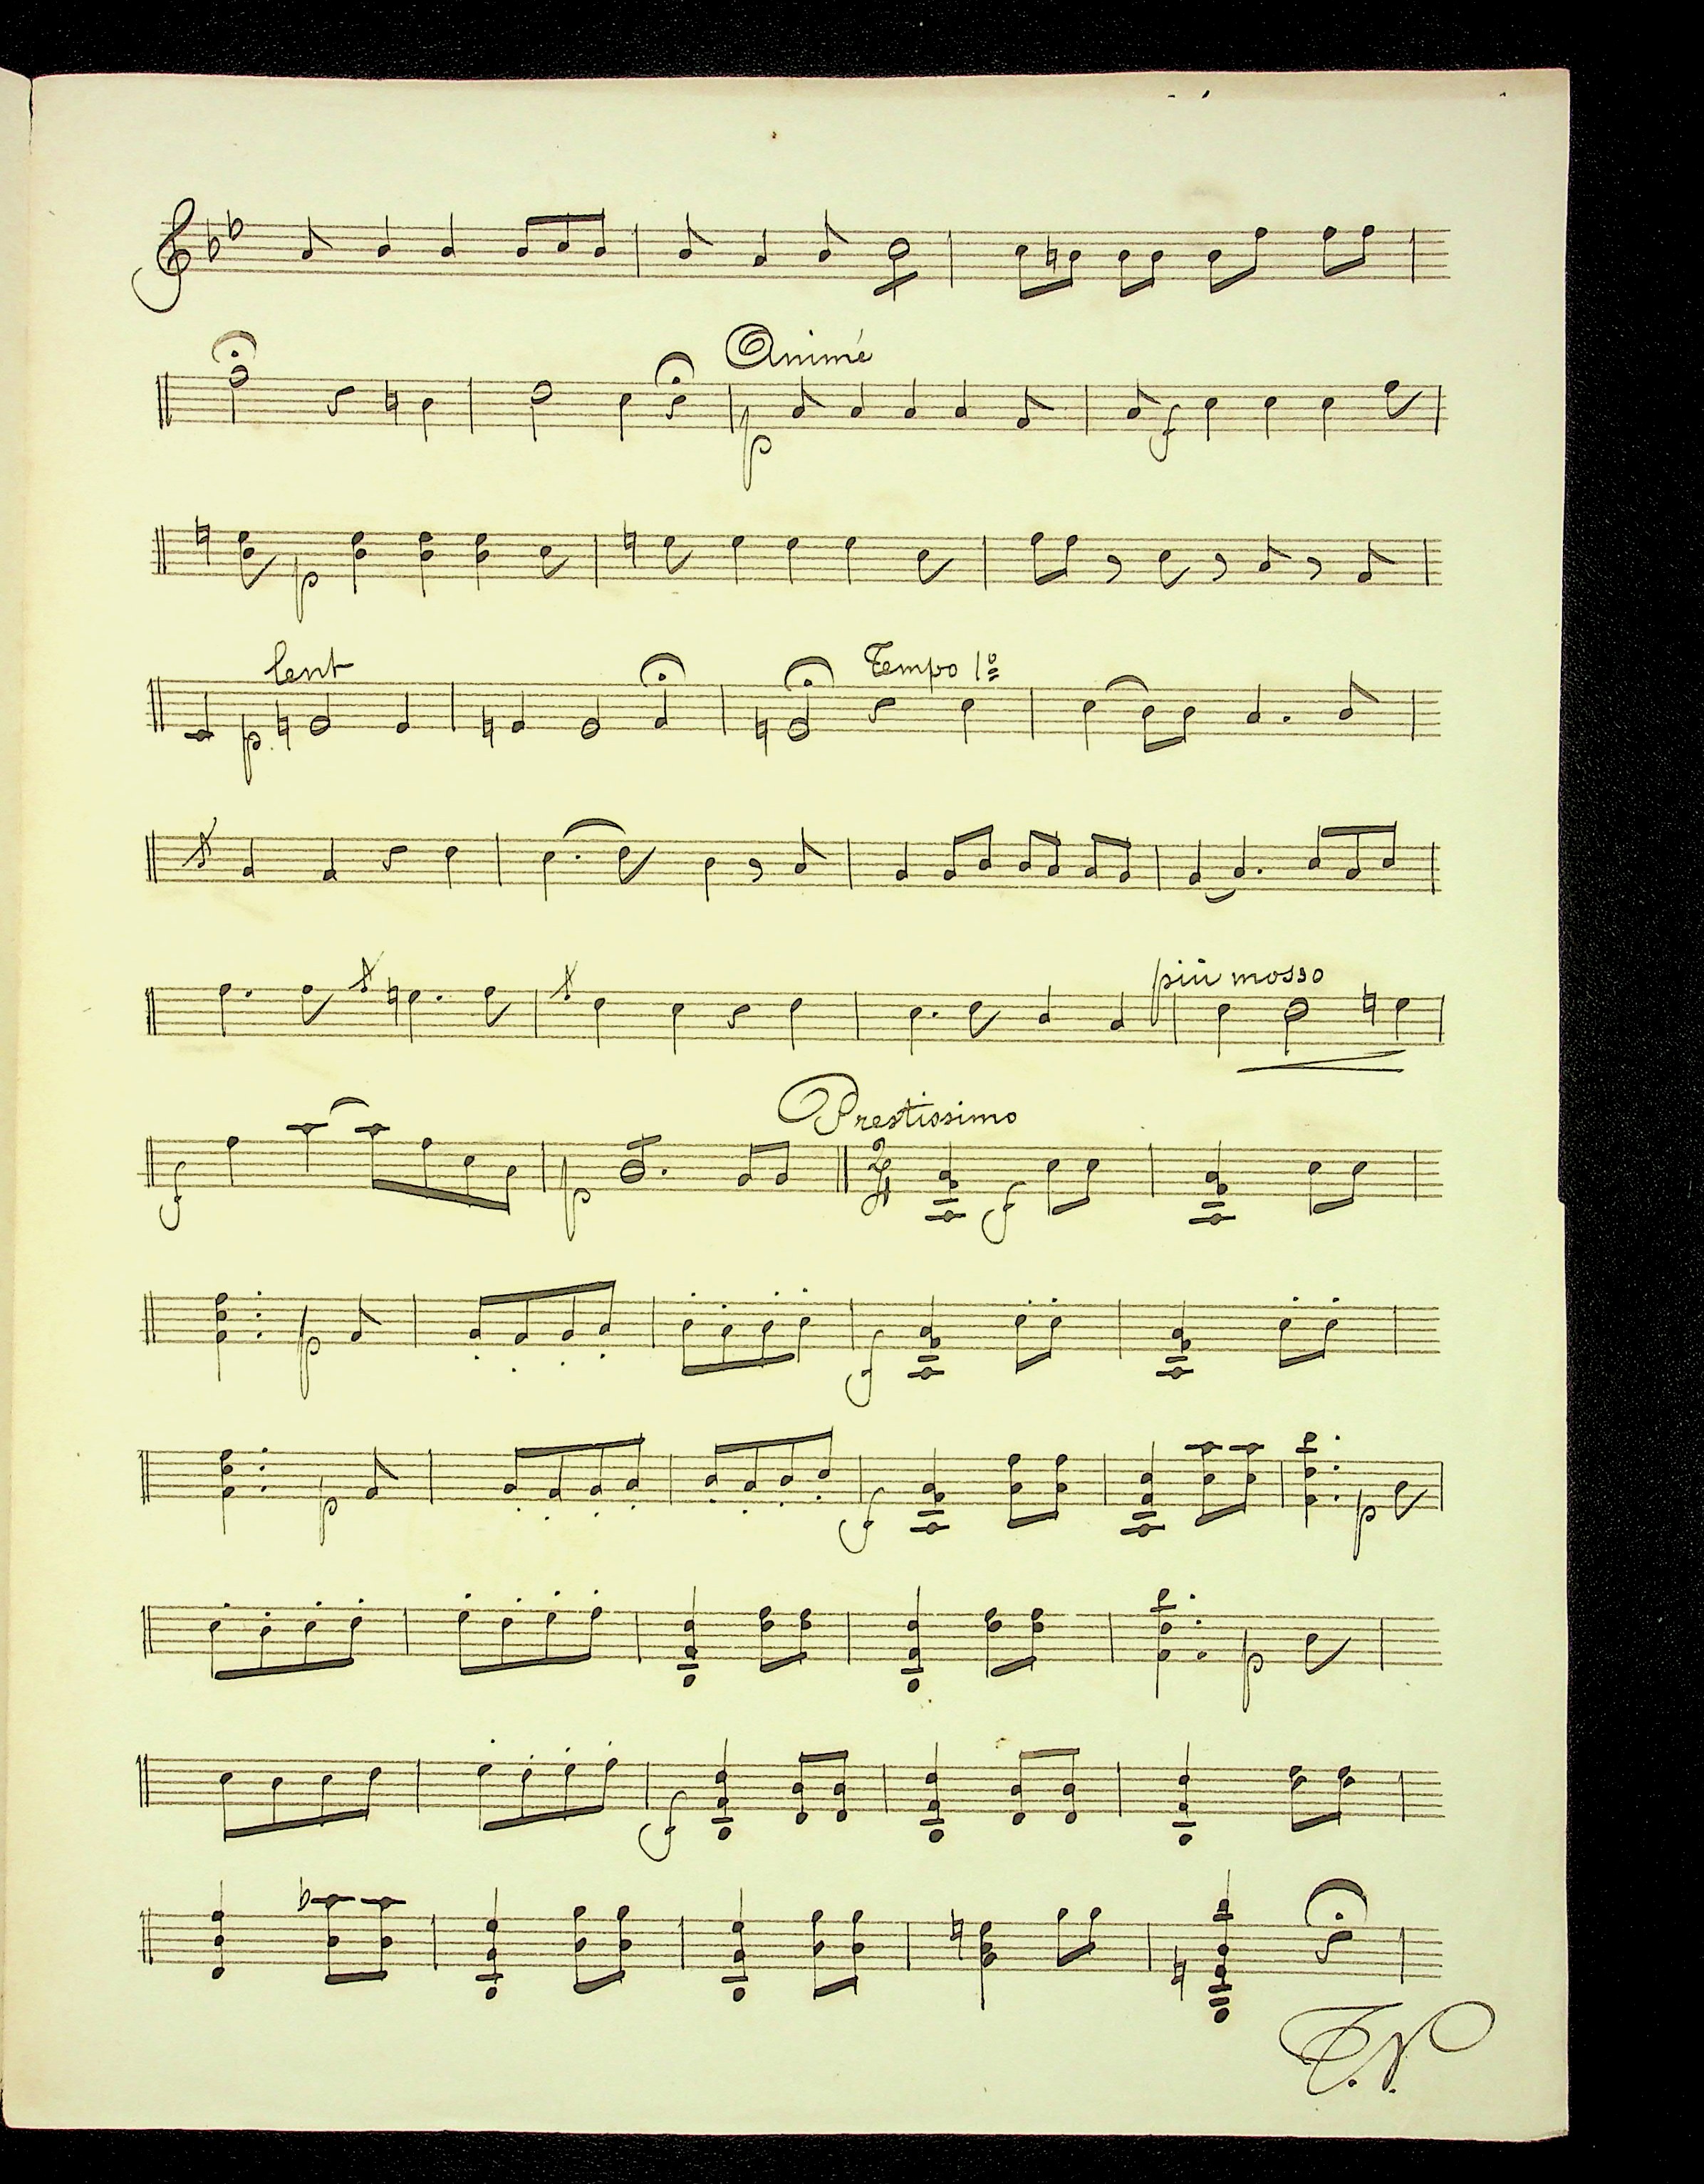 Animé
p f
p
lent Tempo 1º
p
più mosso
f Prestissimo
p 2/4 f
p f
p f p
p
f
T.N.